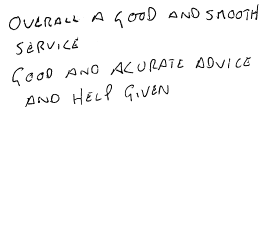 OVERALL A GOOD AND SMOOTH
SERVICE
GOOD AND ACURATE ADVICE
AND HELP GIVEN